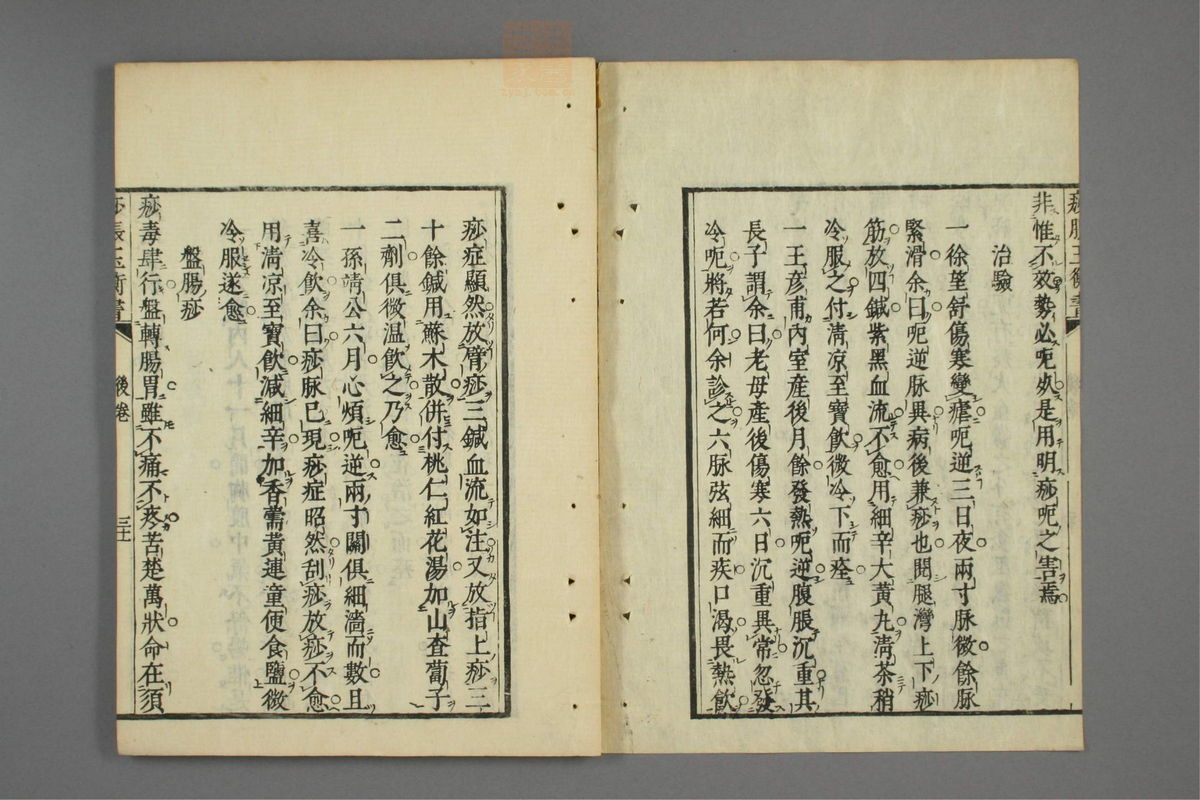 非惟不效勢必呃死是用明痧呃之害焉
治驗
一徐望舒傷寒變瘧呃逆三日夜兩寸脉微餘脉
緊滑余曰呃逆脉異病後兼痧也閱腿灣上下痧
筋放四鍼紫黑血流不愈用細辛大黃丸淸茶稍
冷服之付淸凉至寶飲微冷下而痊
一王彥甫內室產後月餘發熱呃逆腹脹沉重其
長子謂余曰老母產後傷寒六日沉重異常忽發
冷呃將若何余診之六脉弦細而疾口渴畏熱飲
痧症顯然放臂痧三鍼血流如注又放指上痧三
十餘鍼用蘇木散併付桃仁紅花湯加山查蔔子
二劑俱微温飲之乃愈
一孫靖公六月心煩呃逆兩寸關俱細濇而數且
喜冷飲余曰痧脉已現痧症昭然刮痧放痧不愈
用淸凉至寶飲減細辛加香薷黃連童便食鹽微
冷服遂愈
盤腸痧
痧毒肆行盤轉腸胃雖不痛不疼苦楚萬狀命在須
後卷
zynj.com.cn